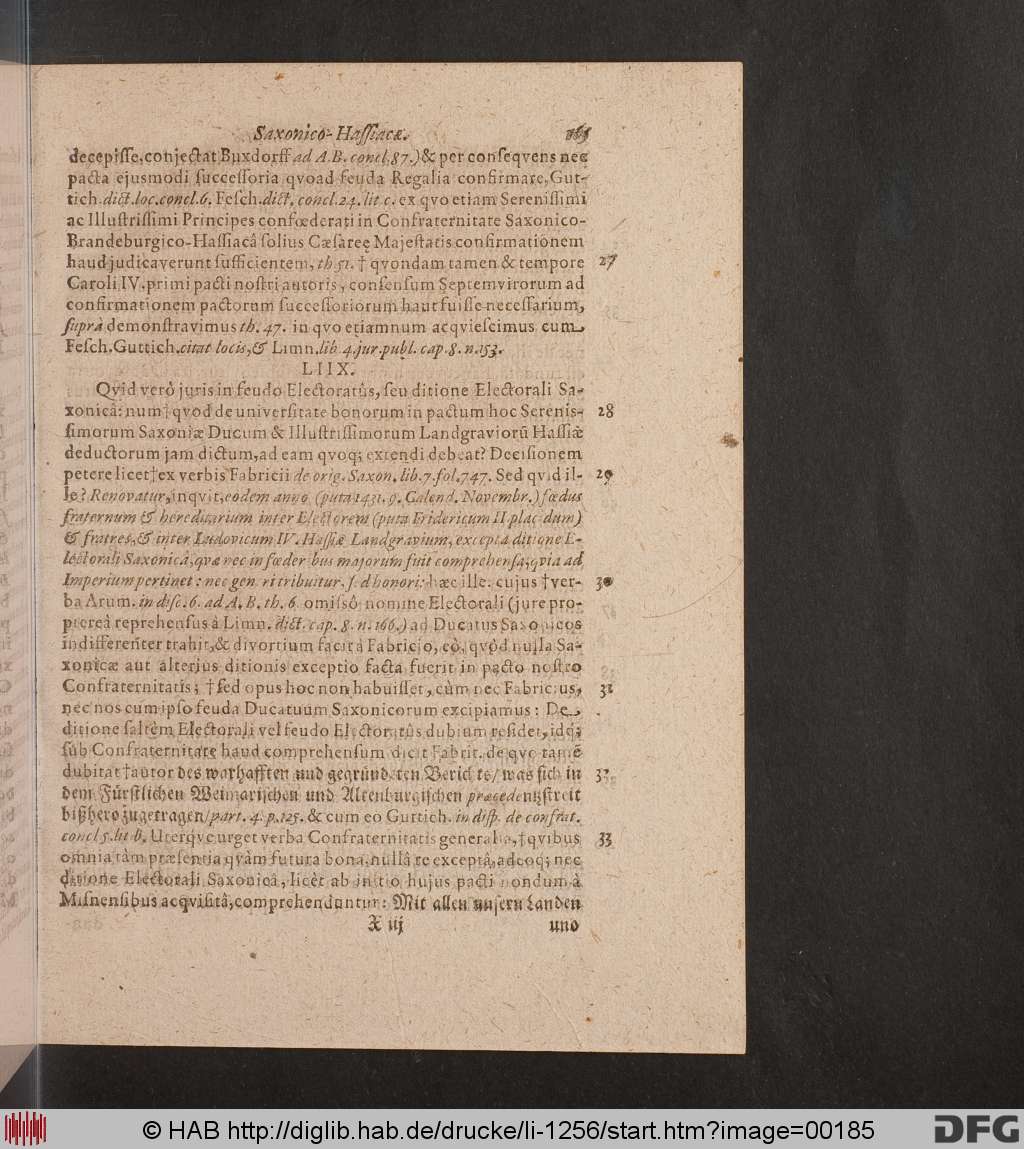 Saxonico-Hassiacæ. 165
decepisse, conjectat Buxdorff ad A.B. concl. 87.) & per conseqvens nec
pacta ejusmodi successoria qvoad feuda Regalia confirmare, Gut-
tich. dict. loc. concl. 6. Fesch. dict. concl. 24. lit c. ex qvo etiam Serenissimi
ac Illustrissimi Principes confœderati in Confraternitate Saxonico-
Brandeburgico-Hassiacâ solius Cæsareę Majestatis confirmationem
haud judicaverunt sufficientem, th. 51. † qvondam tamen & tempore 27
Caroli IV. primi pacti nostri autoris, consensum Septemvirorum ad
confirmationem pactorum successoriorum haut fuisse necessarium,
suprà demonstravimus th. 47. in qvo etiamnum acqviescimus cum
Fesch. Guttich. citat locis, & Limn. lib. 4. jur. publ. cap. 8. n. 153.
LIIX.
Qvid verò juris in feudo Electoratûs, seu ditione Electorali Sa-
xonicâ: num † qvod de universitate bonorum in pactum hoc Serenis- 28
simorum Saxoniæ Ducum & Illustrissimorum Landgraviorū Hassiæ
deductorum jam dictum, ad eam qvoq; extendi debeat? Decisionem
petere licet † ex verbis Fabricii de orig. Saxon. lib. 7. fol. 747. Sed qvid il- 29
le? Renovatur, inqvit, eodem anno (puta 1431. 9. Calend. Novembr.) fœdus
fraternum & hereditarium inter Electorem (puta Fridericum II. placidum)
& fratres, & inter Ludovicum IV. Hassiæ Landgravium, excepta ditione E-
lectorali Saxonicâ, qvæ nec in fœderibus majorum fuit comprehensa; qvia ad
Imperium pertinet: nec generi tribuitur, sed honori: hæc ille: cujus † ver- 30
ba Arum. in disc. 6. ad A. B. th. 6. omissô nomine Electorali (jure pro-
ptereà reprehensus à Limn. dict. cap. 8. n. 166.) ad Ducatus Saxonicos
indifferenter trahit, & divortium facit à Fabricio, eò, qvod nulla Sa-
xonicæ aut alterius ditionis exceptio facta fuerit in pacto nostro
Confraternitatis; † sed opus hoc non habuisset, cùm nec Fabricius, 31
nec nos cum ipso feuda Ducatuum Saxonicorum excipiamus: De
ditione saltèm Electorali vel feudo Electoratûs dubium residet, idq;
sub Confraternitate haud comprehensum dicit Fabrit. de qvo tamē
dubitat † autor des warhafften und gegründeten Berichtes/ was sich in 32
dem Fürstlichen Weimarischen und Altenburgischen præcedentzstreit
bißhero zugetragen/ part. 4. p. 125. & cum eo Guttich. in disp. de confrat.
concl 5. lit b. Uterqve urget verba Confraternitatis generalia, † qvibus 33
omnia tàm præsentia qvàm futura bona, nullâ re exceptâ, adeoq; nec
ditione Electorali Saxonicâ, licèt ab initio hujus pacti nondum à
Misnensibus acqvisitâ, comprehenduntur: Mit allen unsern Landen
X iij und
© HAB http://diglib.hab.de/drucke/li-1256/start.htm?image=00185
DFG